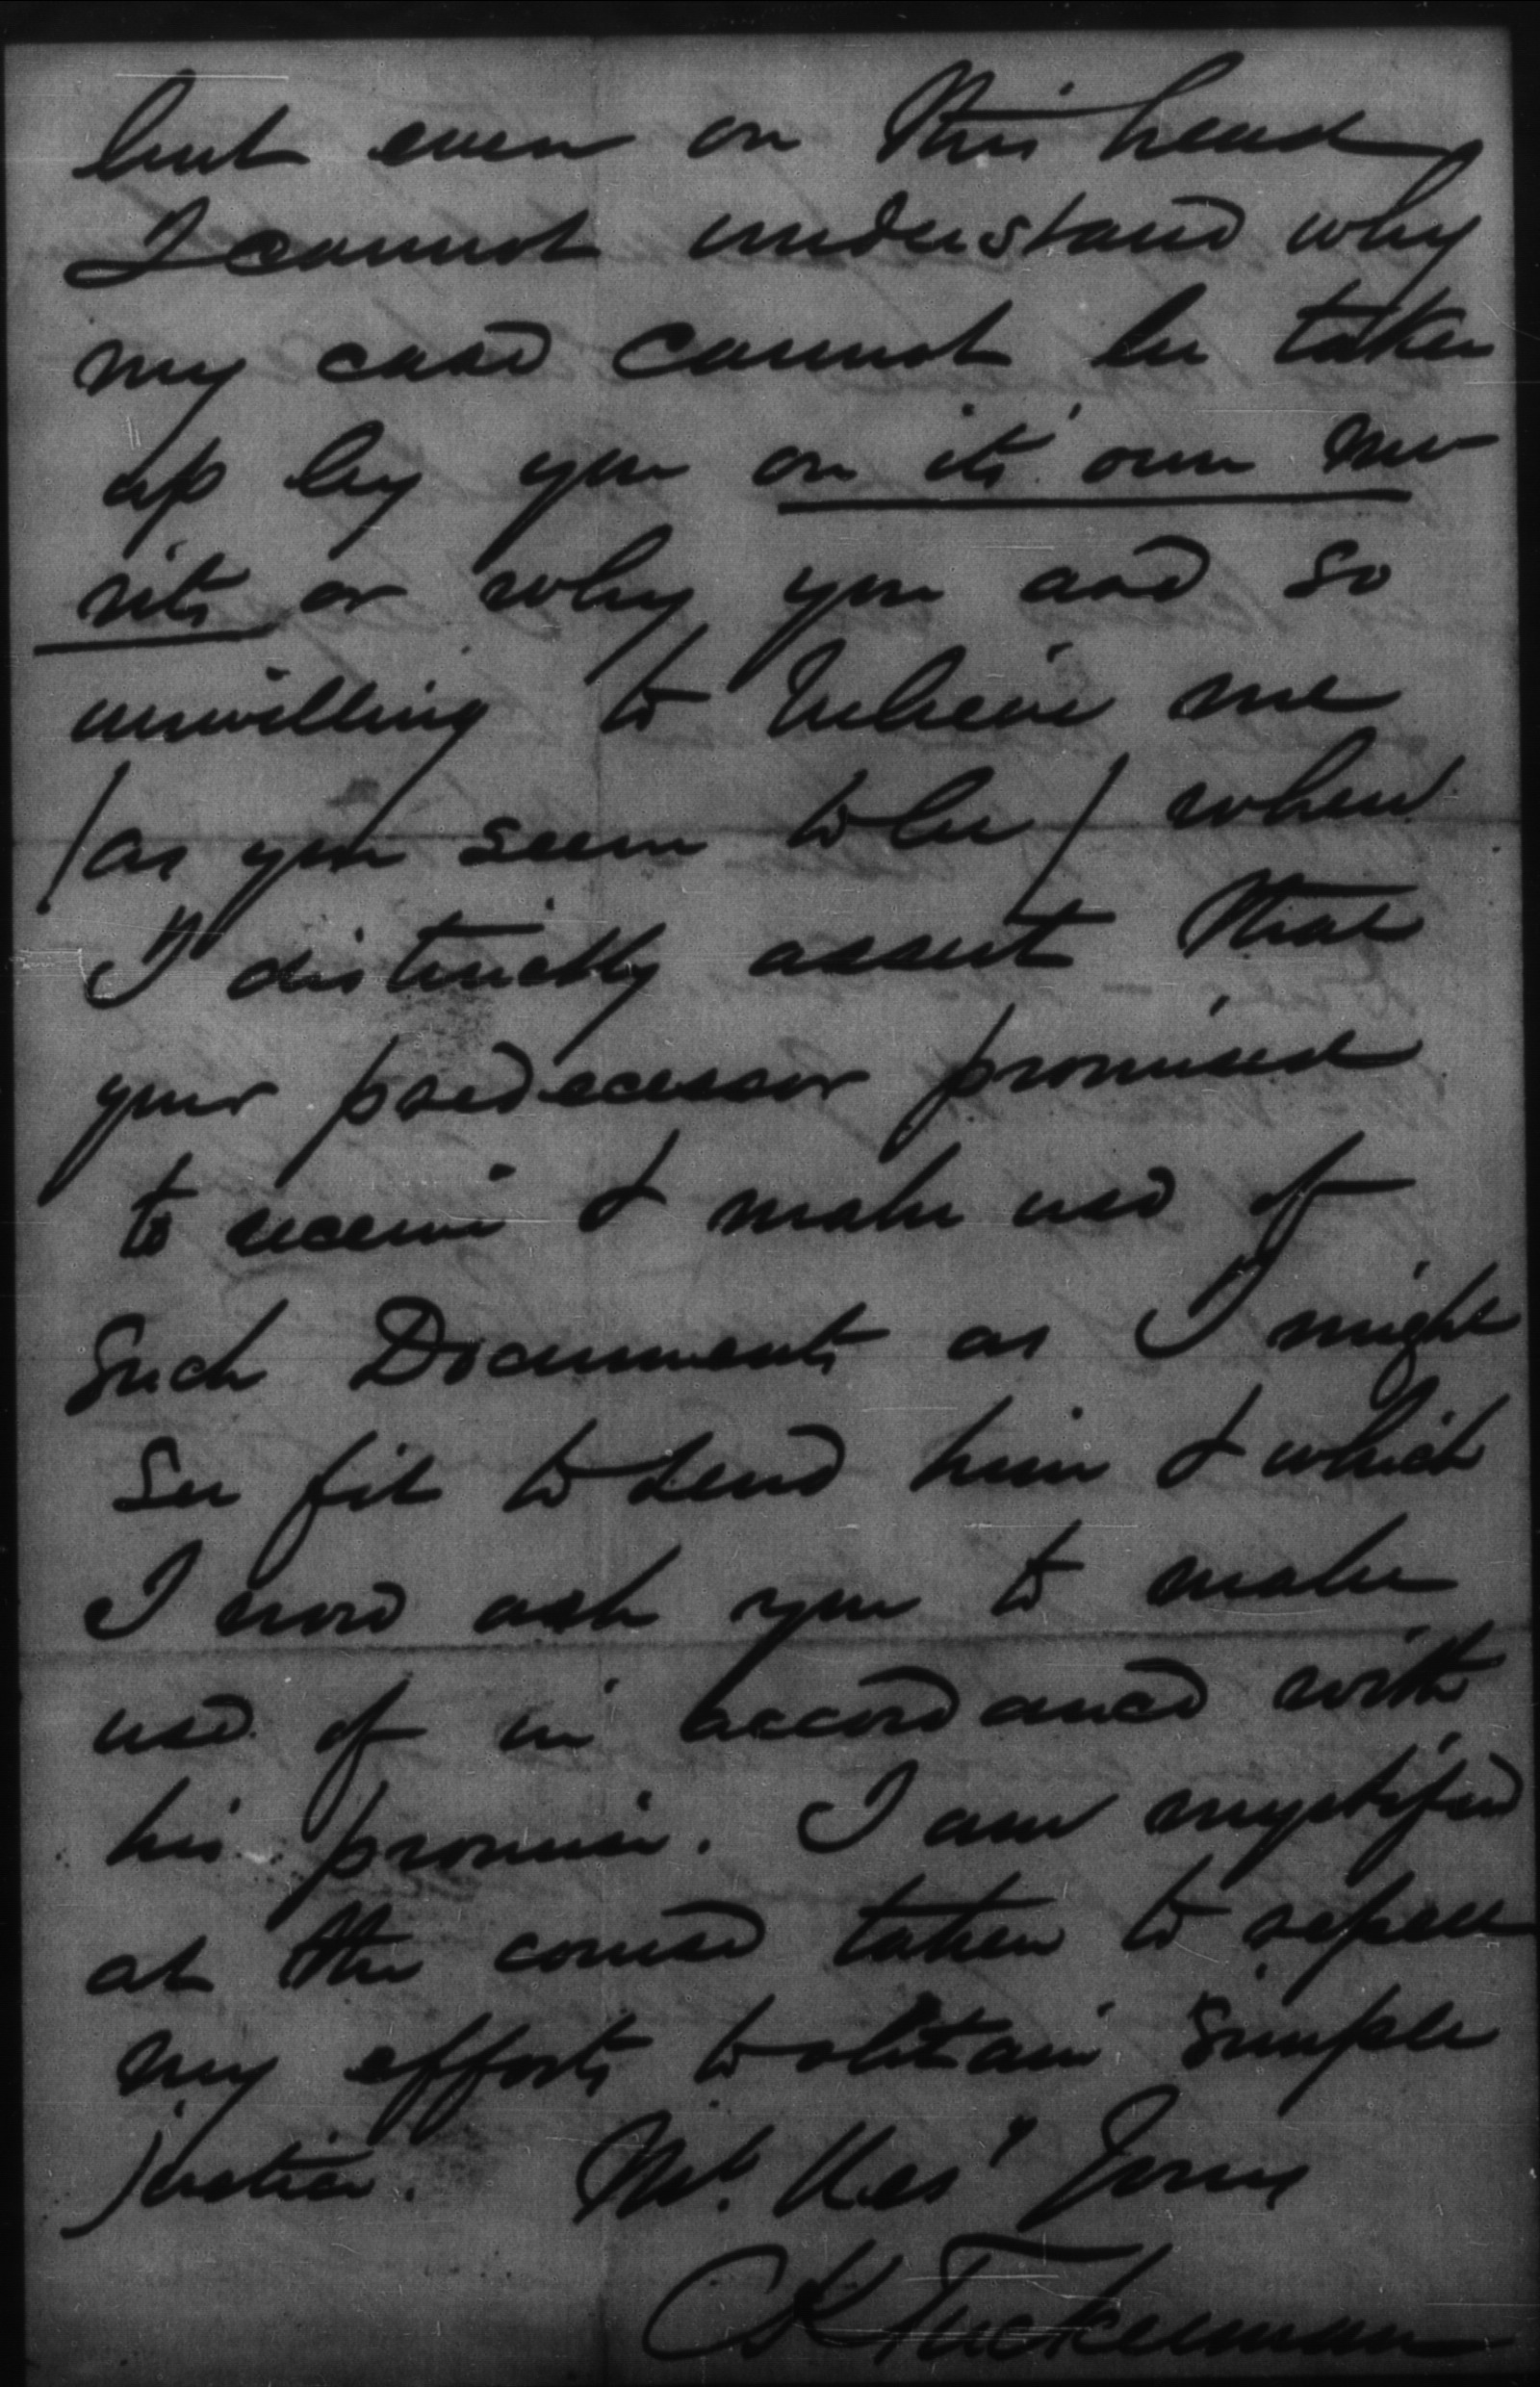 but even on this head
I cannot understand why
my case cannot be taken
up by you on its' own me-
rits or why you are so
unwilling to believe me
(as you seem to be) when
I distinctly assert that
your predecessor promised
to receive & make use of
such Documents as I might
see fit to send him & which
I now ask you to make
use of in accordance with
his promise. I am mystified
at the course taken to repell
my efforts to obtain simple
justice. Mt. Res' Yours
CK Tuckerman